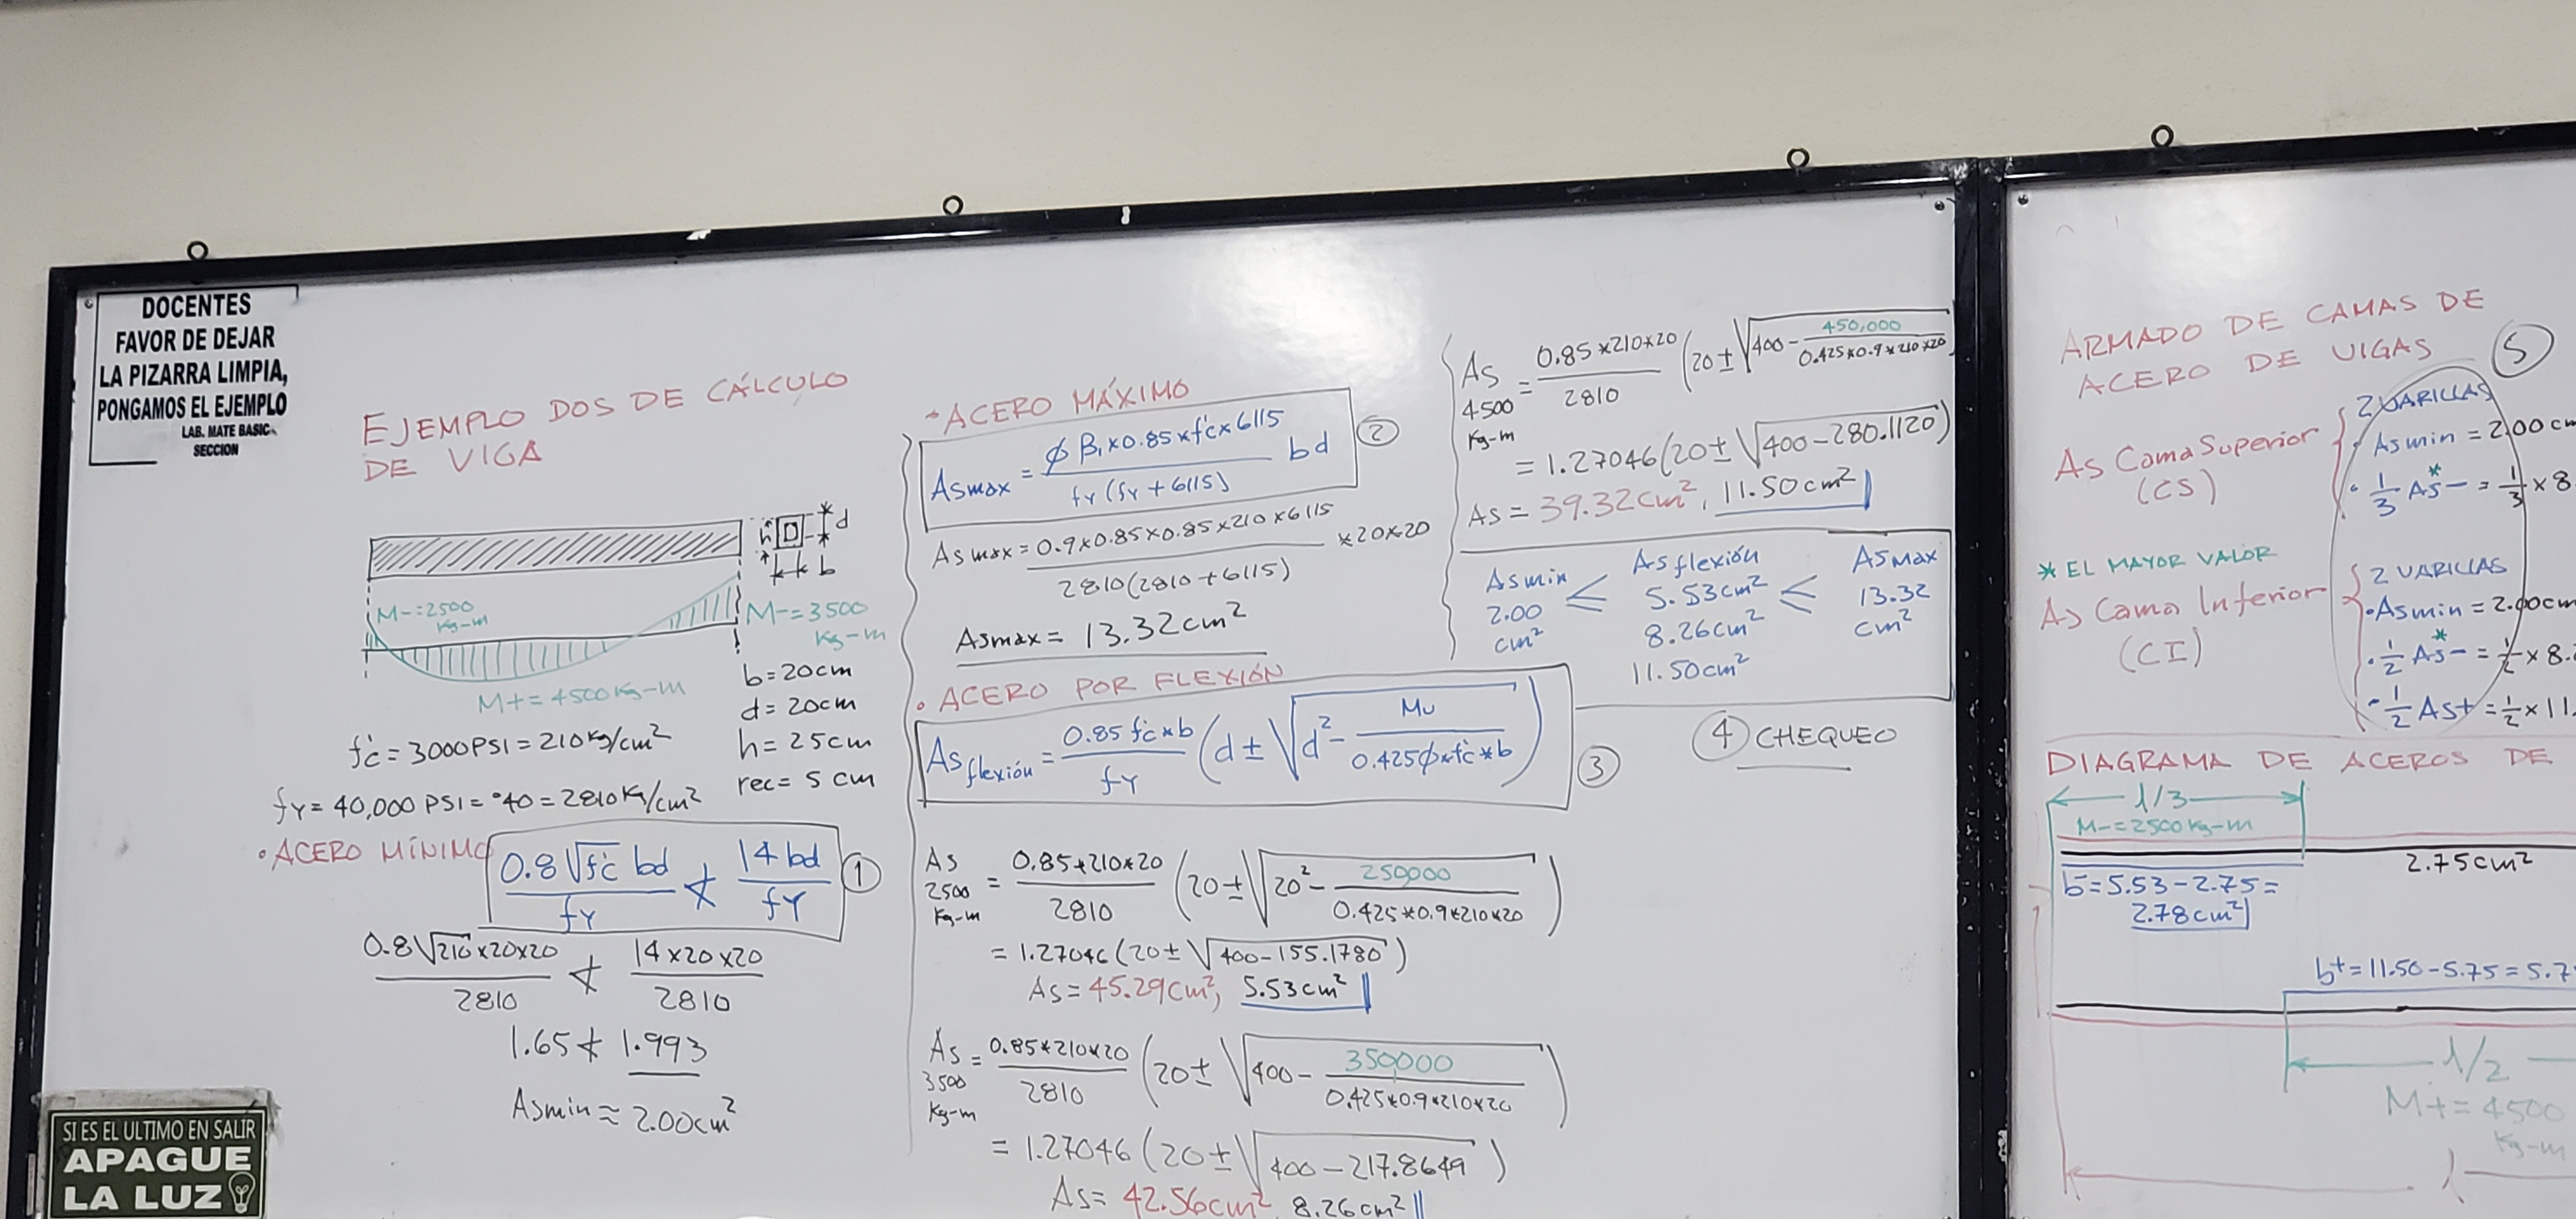 DOCENTES
FAVOR DE DEJAR
LA PIZARRA LIMPIA,
PONGAMOS EL EJEMPLO
LAB. MATE BASIC
SECCION
EJEMPLO DOS DE CÁLCULO
DE VIGA
h d
b
M-=2500
Kg-m
M-=3500
Kg-m
M+=4500Kg-m
b=20cm
d=20cm
h=25cm
rec=5cm
f'c=3000PSI=210Kg/cm²
fy=40,000PSI=°40=2810Kg/cm²
• ACERO MÍNIMO
0.8√f'c bd / fy ≮ 14bd / fy ①
0.8√210×20×20 / 2810 ≮ 14×20×20 / 2810
1.65 ≮ 1.993
Asmin ≈ 2.00cm²
SI ES EL ULTIMO EN SALIR
APAGUE
LA LUZ
• ACERO MÁXIMO
Asmax = φβ₁×0.85×f'c×6115 / fy(fy+6115) bd ②
Asmax = 0.9×0.85×0.85×210×6115 / 2810(2810+6115) ×20×20
Asmax = 13.32cm²
• ACERO POR FLEXIÓN
As flexión = 0.85f'c*b / fy (d±√d²- Mu / 0.425φ*f'c*b) ③
As 2500 Kg-m = 0.85*210*20 / 2810 (20±√20²- 250,000 / 0.425*0.9*210*20)
= 1.27046(20±√400-155.1780)
As=45.29cm², 5.53cm²
As 3500 Kg-m = 0.85*210*20 / 2810 (20±√400- 350,000 / 0.425*0.9*210*20)
= 1.27046(20±√400-217.8649)
As=42.56cm² 8.26cm²
As 4500 Kg-m = 0.85*210*20 / 2810 (20±√400- 450,000 / 0.425*0.9*210*20
= 1.27046(20±√400-280.1120)
As=39.32cm², 11.50cm²
Asmin ≤ Asflexión ≤ Asmax
2.00 5.53cm² 13.32
cm² 8.26cm² cm²
11.50cm²
④ CHEQUEO
ARMADO DE CAMAS DE
ACERO DE VIGAS ⑤
As Cama Superior
(CS)
2 VARILLAS
Asmin = 2.00cm
• 1/3 As-* = 1/3 × 8.
* EL MAYOR VALOR
As Cama Inferior
(CI)
2 VARILLAS
• Asmin = 2.00cm
• 1/2 As-* = 1/2 × 8.2
• 1/2 As+ = 1/2 × 11.
DIAGRAMA DE ACEROS DE
l/3
M-=2500Kg-m
2.75cm²
b-=5.53-2.75=
2.78cm²
b+=11.50-5.75=5.7
l/2
M+=4500
Kg-m
l